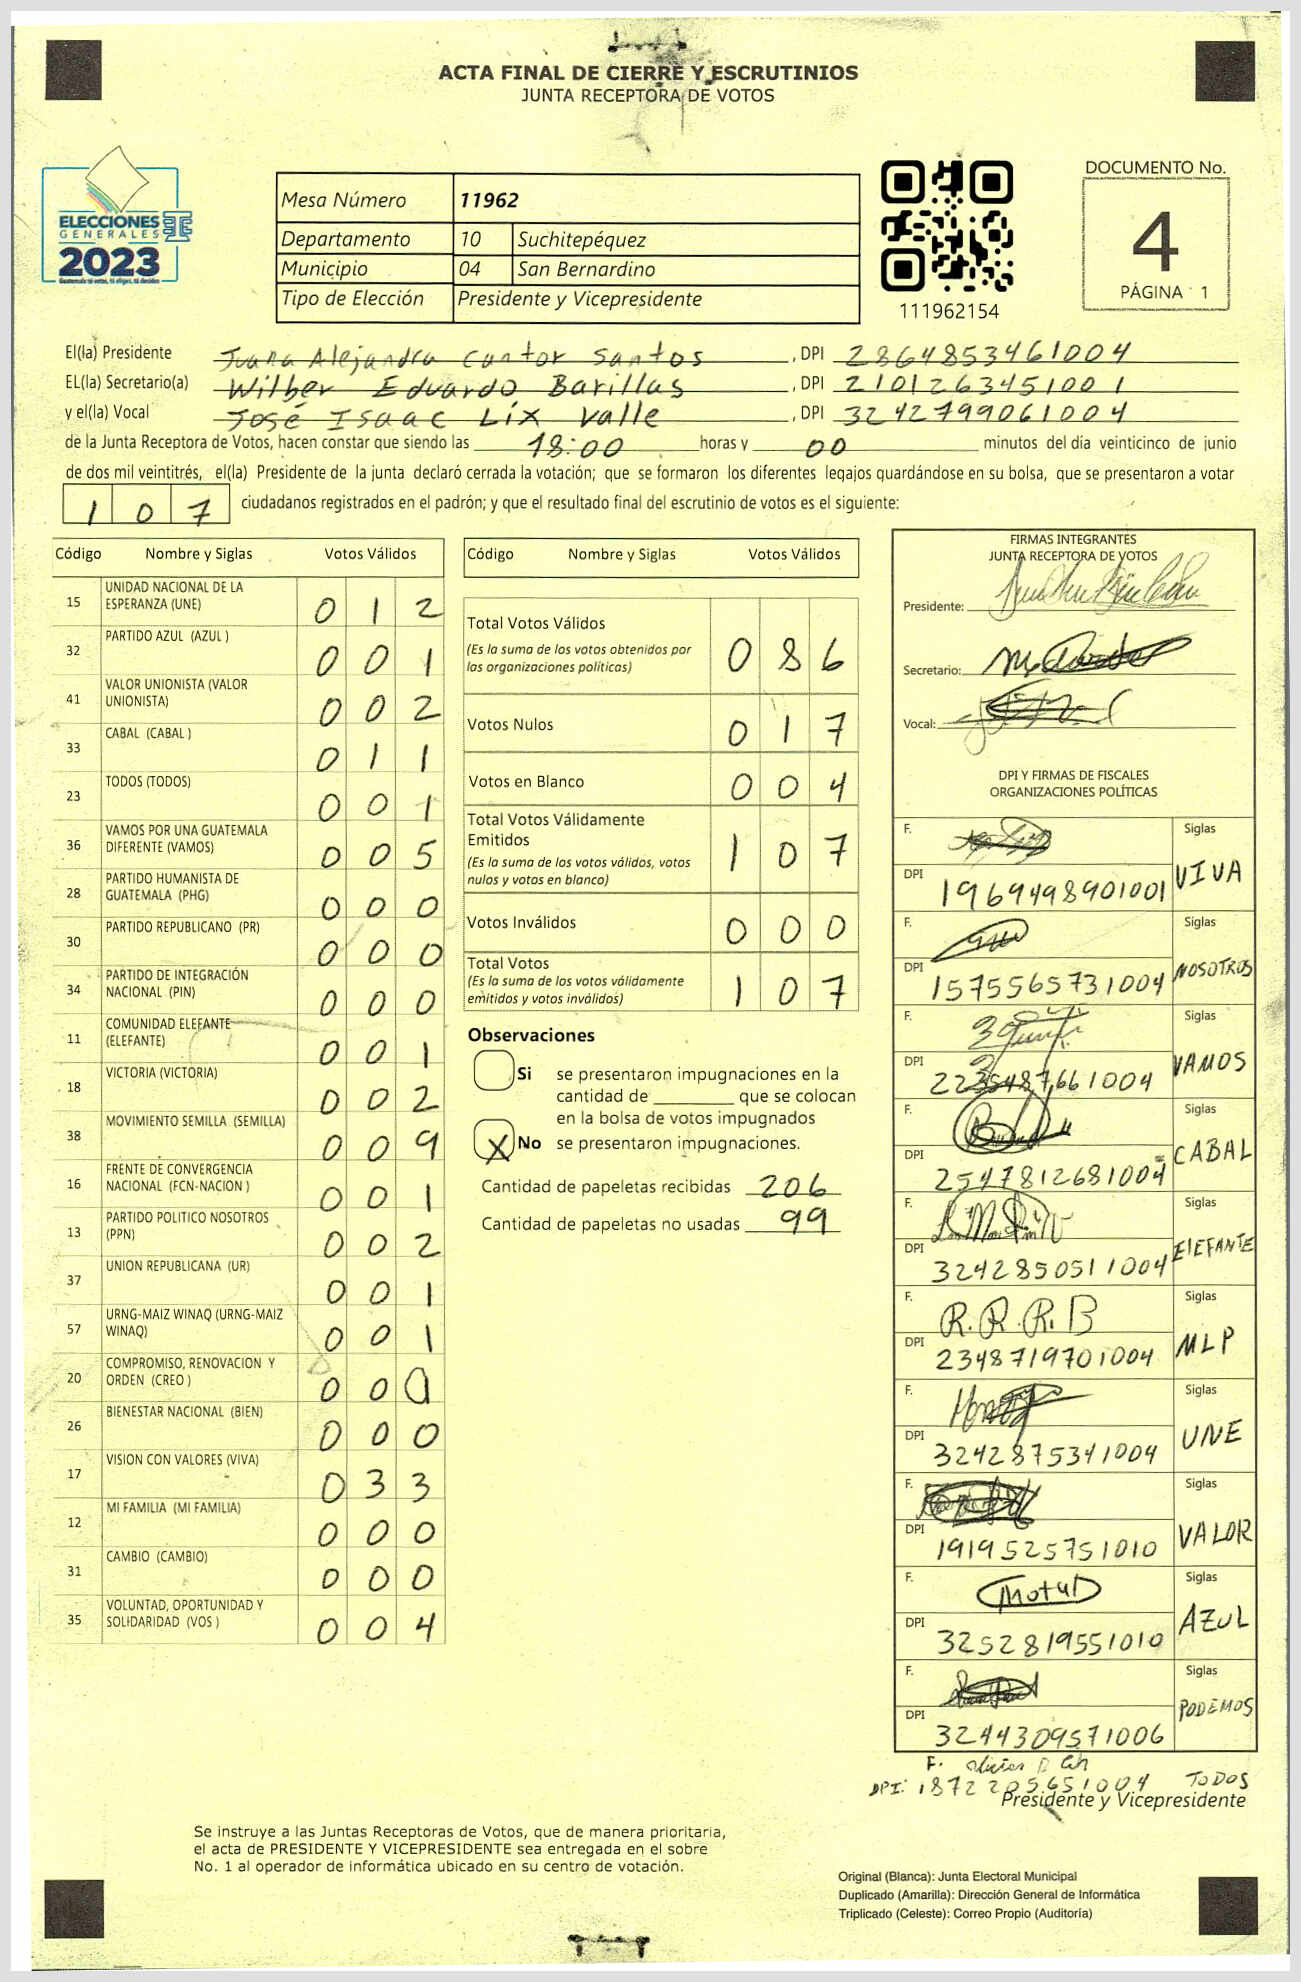 ACTA FINAL DE CIERRE Y ESCRUTINIOS
JUNTA RECEPTORA DE VOTOS
ELECCIONES
GENERALES
2023
Mesa Número 11962
Departamento 10 Suchitepéquez
Municipio 04 San Bernardino
Tipo de Elección Presidente y Vicepresidente
111962154
DOCUMENTO No.
4
PÁGINA 1
El(la) Presidente Juana Alejandra Cantor Santos, DPI 2864853461004
EL(la) Secretario(a) Wilber Eduardo Barillas, DPI 2101263451001
y el(la) Vocal José Isaac Lix Valle, DPI 3242799061004
de la Junta Receptora de Votos, hacen constar que siendo las 18:00 horas y 00 minutos del día veinticinco de junio
de dos mil veintitrés, el(la) Presidente de la junta declaró cerrada la votación; que se formaron los diferentes legajos quardándose en su bolsa, que se presentaron a votar
107 ciudadanos registrados en el padrón; y que el resultado final del escrutinio de votos es el siguiente:
Código Nombre y Siglas Votos Válidos
15 UNIDAD NACIONAL DE LA ESPERANZA (UNE) 012
32 PARTIDO AZUL (AZUL ) 001
41 VALOR UNIONISTA (VALOR UNIONISTA) 002
33 CABAL (CABAL ) 011
23 TODOS (TODOS) 001
36 VAMOS POR UNA GUATEMALA DIFERENTE (VAMOS) 005
28 PARTIDO HUMANISTA DE GUATEMALA (PHG) 000
30 PARTIDO REPUBLICANO (PR) 000
34 PARTIDO DE INTEGRACIÓN NACIONAL (PIN) 000
11 COMUNIDAD ELEFANTE (ELEFANTE) 001
18 VICTORIA (VICTORIA) 002
38 MOVIMIENTO SEMILLA (SEMILLA) 009
16 FRENTE DE CONVERGENCIA NACIONAL (FCN-NACION ) 001
13 PARTIDO POLITICO NOSOTROS (PPN) 002
37 UNION REPUBLICANA (UR) 001
57 URNG-MAIZ WINAQ (URNG-MAIZ WINAQ) 001
20 COMPROMISO, RENOVACION Y ORDEN (CREO ) 000
26 BIENESTAR NACIONAL (BIEN) 000
17 VISION CON VALORES (VIVA) 033
12 MI FAMILIA (MI FAMILIA) 000
31 CAMBIO (CAMBIO) 000
35 VOLUNTAD, OPORTUNIDAD Y SOLIDARIDAD (VOS ) 004
Código Nombre y Siglas Votos Válidos
Total Votos Válidos 086
(Es la suma de los votos obtenidos por
las organizaciones políticas)
Votos Nulos 017
Votos en Blanco 004
Total Votos Válidamente
Emitidos 107
(Es la suma de los votos válidos, votos
nulos y votos en blanco)
Votos Inválidos 000
Total Votos 107
(Es la suma de los votos válidamente
emitidos y votos inválidos)
Observaciones
Si se presentaron impugnaciones en la
cantidad de ________ que se colocan
en la bolsa de votos impugnados
X No se presentaron impugnaciones.
Cantidad de papeletas recibidas 206
Cantidad de papeletas no usadas 99
FIRMAS INTEGRANTES
JUNTA RECEPTORA DE VOTOS
Presidente:
Secretario:
Vocal:
DPI Y FIRMAS DE FISCALES
ORGANIZACIONES POLÍTICAS
F. Siglas
DPI 1969498901001 VIVA
F. Siglas
DPI 1575565731004 NOSOTROS
F. Siglas
DPI 2235487661004 VAMOS
F. Siglas
DPI 2547812681004 CABAL
F. Siglas
DPI 3242850511004 ElEFANTE
F. R.R.R.B Siglas
DPI 2348719701004 MLP
F. Siglas
DPI 3242875341004 UNE
F. Siglas
DPI 1919525751010 VALOR
F. Siglas
DPI 3252819551010 AZUL
F. Siglas
DPI 3244309571006 PODEMOS
F.
DPI: 1872205651004 TODOS
Presidente y Vicepresidente
Se instruye a las Juntas Receptoras de Votos, que de manera prioritaria,
el acta de PRESIDENTE Y VICEPRESIDENTE sea entregada en el sobre
No. 1 al operador de informática ubicado en su centro de votación.
Original (Blanca): Junta Electoral Municipal
Duplicado (Amarilla): Dirección General de Informática
Triplicado (Celeste): Correo Propio (Auditoría)